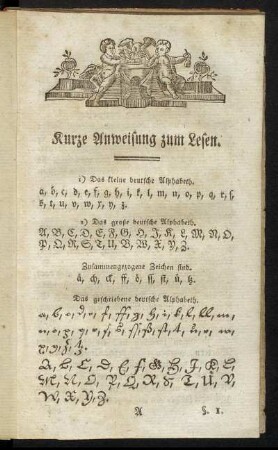 Kurze Anweisung zum Lesen.
1) Das kleine deutsche Alphabeth.
a, b, c, d, e, f, g, h, i, k, l, m, n, o, p, q, r, ſ,
s, t, u, v, w, x, y, z.
2) Das große deutsche Alphabeth.
A, B, C, D, E, F, G, H, I, K, L, M, N, O,
P, Q, R, S, T, U, V, W, X, Y, Z.
Zusammengezogene Zeichen sind.
ä, ch, ck, ff, ö, ſſ, ſt, ü, tz.
Das geschriebene deutsche Alphabeth.
A, B, C, D, E, F, G, H, I, K, L,
M, N, O, P, Q, R, S, T, U, V,
W, X, Y, Z.
A
§. 1.